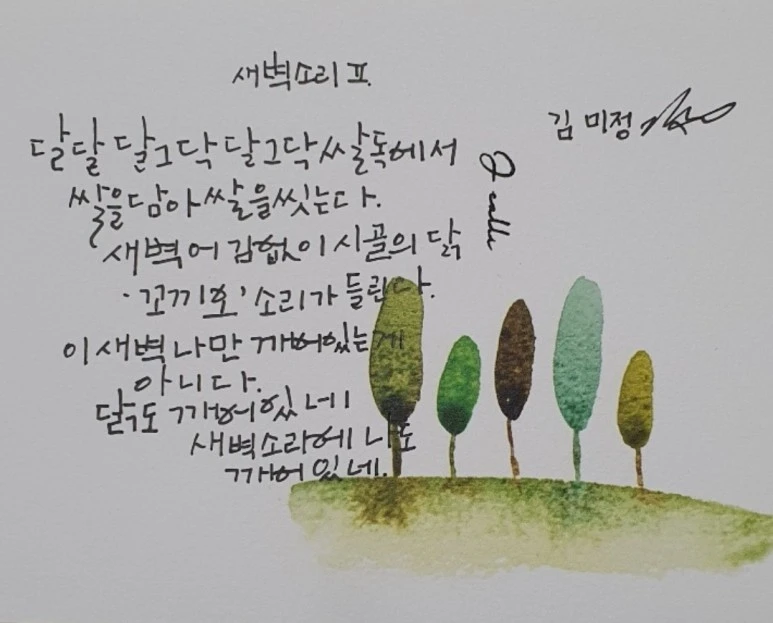 새벽소리 Ⅱ.
김 미정
달달 달그닥 달그닥 쌀독에서
쌀을 담아 쌀을 씻는다.
새벽에 김없이 시골의 닭
'꼬끼오' 소리가 들린다.
이 새벽 나만 깨어있는게
아니다.
닭도 깨어있네
새벽소리에 나도
깨어있네.